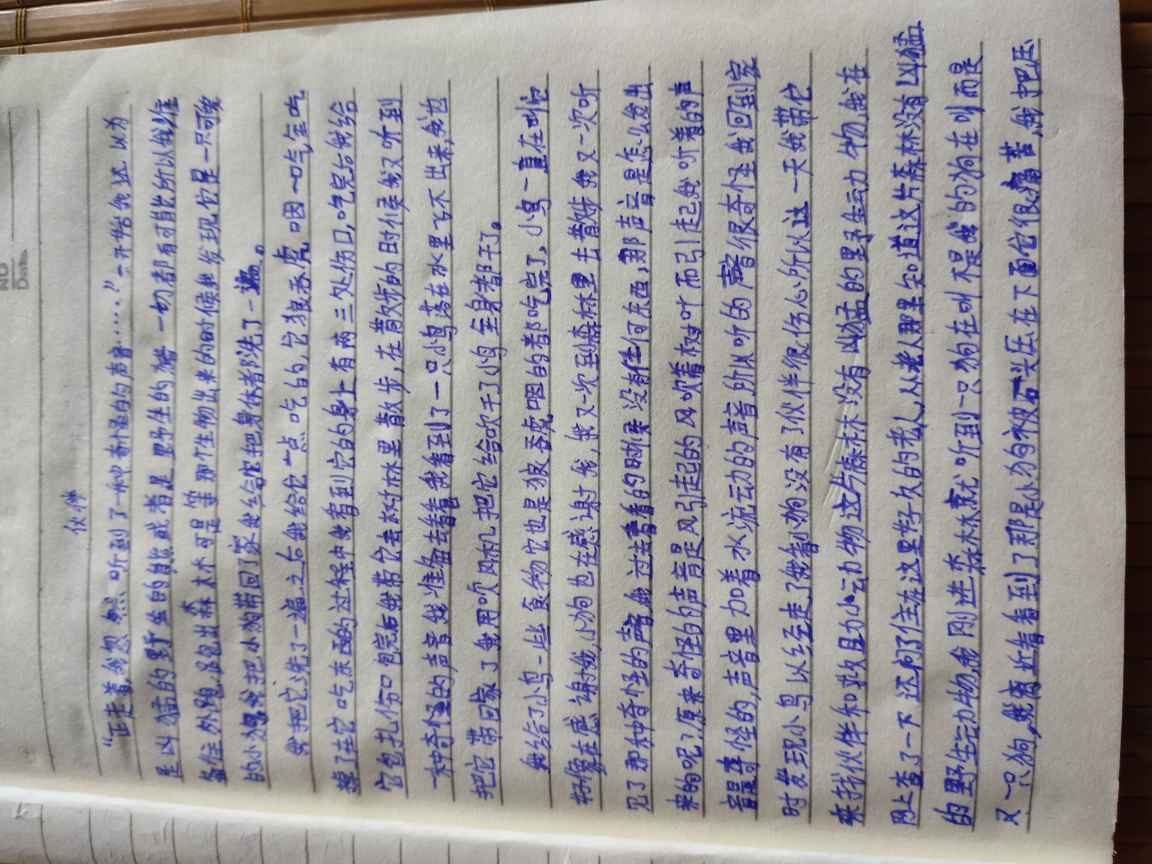 NO
Date
伙伴
“正走着我忽然听到了一种奇怪的声音……”一开始我还以为
是凶猛的野生的熊或者是野生的猪一切都有可能所以我准
备往外跑,跑出森林可是等那个生物出来的时候我发现它是一只可爱
的小狗我把小狗带回了家我给它把身体都洗了一遍。
我把它洗了一遍之后我给它一点吃的,它狼吞虎咽一口气全吃
掉了在它吃东西的过程中我看到它的身上有两三处伤口,吃完后我给
它包扎伤口包完后我带它去树林里散步,在散步的时候我又听到
一种奇怪的声音我准备去看看我看到了一只小鸟落在水里飞不出来,我也
把它带回家了我用吹风机把它给吹干了小鸟全身都干了。
我给了小鸟一些食物它也是狼吞虎咽的都吃完了,小鸟一直在叫
好像在感谢我,小狗也在感谢我,我又一次到森林里去散步我又一次听
见了那种奇怪的声音我过去看看的时候没有任何东西,那声音是怎么发出
来的呢?原来奇怪的声音是风引起的风吹着树叶而引起处听着的声
音是奇怪的,声音里加着水流动的声音所以听的声音很奇怪我回到家
时发现小鸟以经走了我看小狗没有了伙伴很伤心所以这一天我带它
来找伙伴和收且小动物这片森林没有凶猛的里予生动物,我在
网上查了一下还问了住在这里好久的老人,从老人那里知道这片森林没有凶猛
的野生动物我刚进森林就听到一只狗在叫不是我的狗在叫而是
又一只狗,我靠近看看到了那是小狗被石头压在下面它很痛苦,我把压